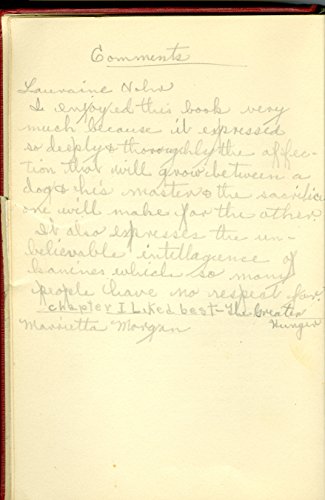 Comments
Lauraine Nohr
I enjoyed this book very
much because it expressed
so deeply & thoroughly the affec-
tion that will grow between a
dog & his master & the sacrifice
one will make for the other.
It also expresses the un-
believable intellagence of
canines which so many
people have no respect for.
chapter I Liked best - The Greater
Hunger
Marrietta Morgan